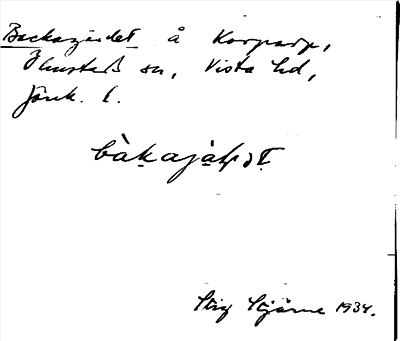 Backagärdet å Korparp,
Ölmstads sn, Vista hd,
Jönk. l.
bàkajàḷət
Stig Stjärne 1934.